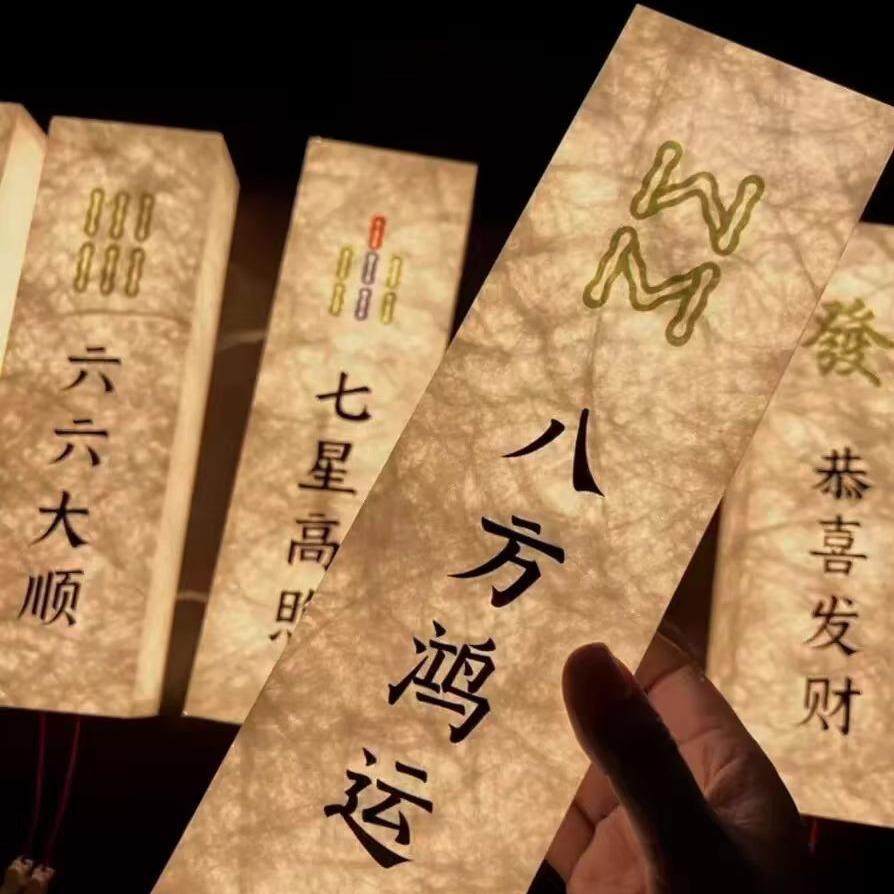 六六大顺
七星高照
八方鸿运
發
恭喜发财